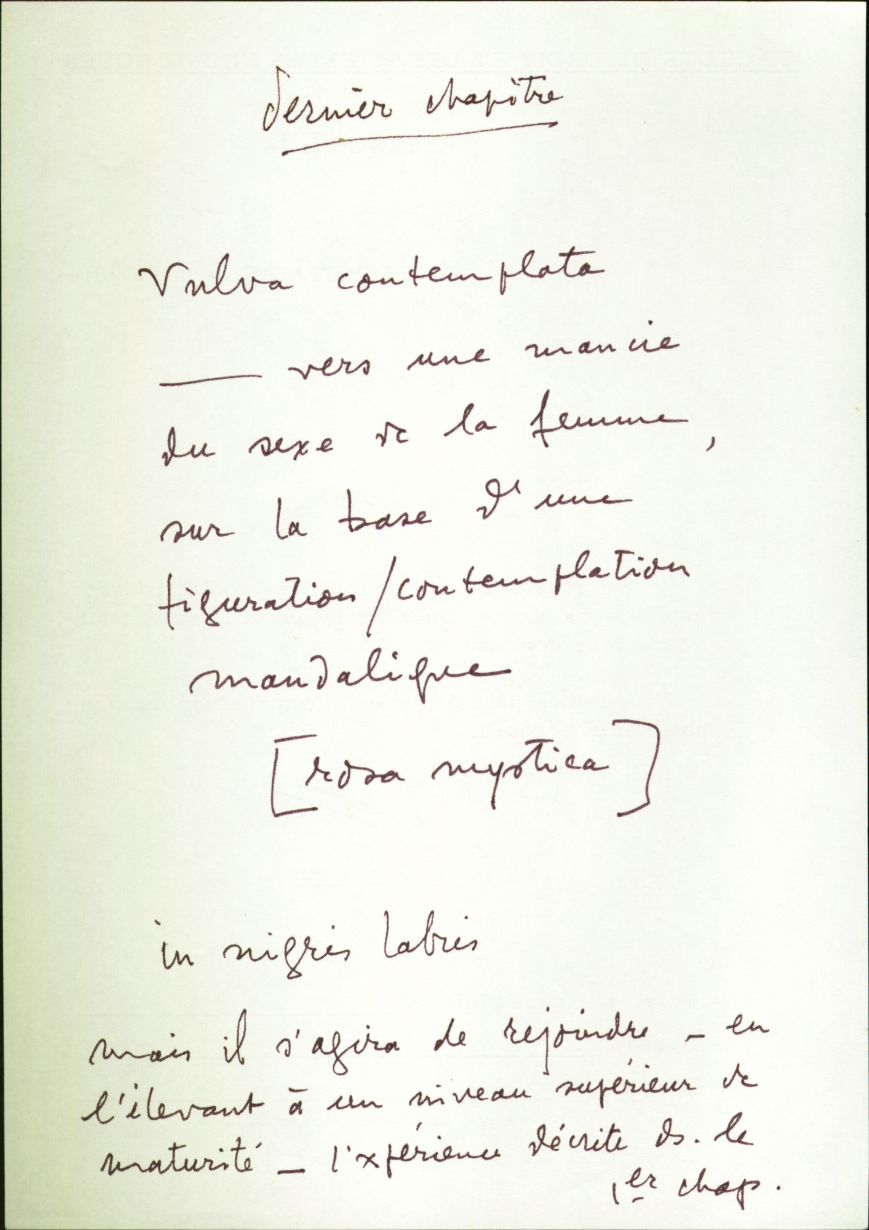 dernier chapître
Vulva contemplata
— vers une mancie
du sexe de la femme,
sur la base d'une
figuration/contemplation
mandalique
[rosa mystica]
in nigris labris
mais il s'agira de rejoindre – en
l'élevant à un niveau supérieur de
maturité – l'xpérience décrite ds. le
1er chap.